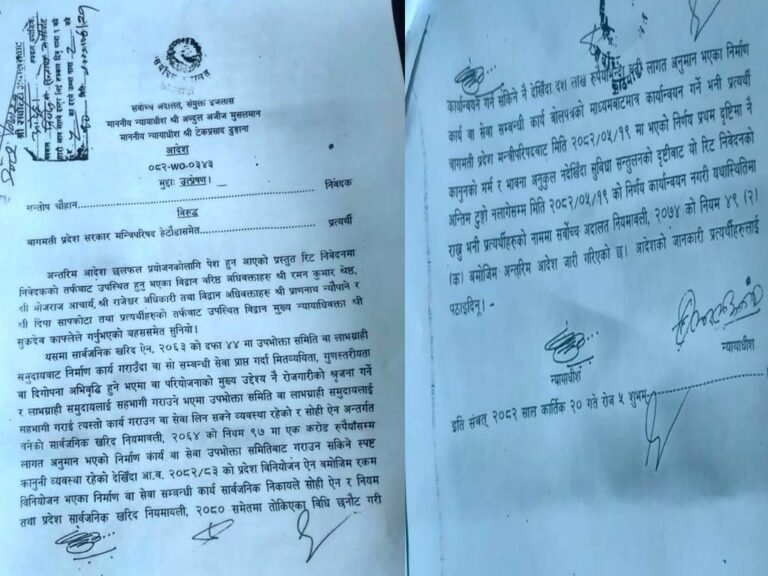 सर्वोच्च अदालत, संयुक्त इजलास
माननीय न्यायाधीश श्री अब्दुल अजीज मुसलमान
माननीय न्यायाधीश श्री टेकप्रसाद ढुङ्गाना
आदेश
०८२-WO-०३४३
मुद्दाः उत्प्रेषण।
सन्तोष चौहान निवेदक
विरुद्ध
बागमती प्रदेश सरकार मन्त्रिपरिषद हेटौंडासमेत प्रत्यर्थी
अन्तरिम आदेश छलफल प्रयोजनकोलागि पेश हुन आएको प्रस्तुत रिट निवेदनमा
निवेदकको तर्फबाट उपस्थित हुनु भएका विद्वान वरिष्ठ अधिवक्ताहरु श्री रमन कुमार श्रेष्ठ,
श्री भोजराज आचार्य, श्री राजेश्वर अधिकारी तथा विद्वान अधिवक्ताहरु श्री प्राणनाथ न्यौपाने र
श्री दिपा सापकोटा तथा प्रत्यर्थीहरुको तर्फबाट उपस्थित विद्वान मुख्य न्यायाधिवक्ता श्री
सुकदेव काफ्लेले गर्नुभएको बहससमेत सुनियो।
यसमा सार्वजनिक खरिद ऐन, २०६३ को दफा ४४ मा उपभोक्ता समिति वा लाभग्राही
समुदायबाट निर्माण कार्य गराउँदा वा सो सम्बन्धी सेवा प्राप्त गर्दा मितव्ययिता, गुणस्तरीयता
वा दिगोपना अभिवृद्धि हुने भएमा वा परियोजनाको मुख्य उद्देश्य नै रोजगारीको श्रृजना गर्ने
र लाभग्राही समुदायलाई सहभागी गराउने भएमा उपभोक्ता समिति वा लाभग्राही समुदायलाई
सहभागी गराई त्यस्तो कार्य गराउन वा सेवा लिन सक्ने व्यवस्था रहेको र सोही ऐन अन्तर्गत
बनेको सार्वजनिक खरिद नियमावली, २०६४ को नियम ९७ मा एक करोड रुपैयाँसम्म
लागत अनुमान भएको निर्माण कार्य वा सेवा उपभोक्ता समितिबाट गराउन सकिने स्पष्ट
कानूनी व्यवस्था रहेको देखिंदा आ.व. २०८२/८३ को प्रदेश विनियोजन ऐन बमोजिम रकम
विनियोजन भएका निर्माण वा सेवा सम्बन्धी कार्य सार्वजनिक निकायले सोही ऐन र नियम
तथा प्रदेश सार्वजनिक खरिद नियमावली, २०८० समेतमा तोकिएका विधि छनौट गरी
कार्यान्वयन गर्न सकिने नै देखिंदा दश लाख रुपैयाँभन्दा बढी लागत अनुमान भएका निर्माण
कार्य वा सेवा सम्बन्धी कार्य बोलपत्रको माध्यमबाटमात्र कार्यान्वयन गर्ने भनी प्रत्यर्थी
बागमती प्रदेश मन्त्रीपरिषदबाट मिति २०८२/०५/१९ मा भएको निर्णय प्रथम दृष्टिमा नै
कानूनको मर्म र भावना अनुकुल नदेखिंदा सुविधा सन्तुलनको दृष्टीबाट यो रिट निवेदनको
अन्तिम टुङ्गो नलागेसम्म मिति २०८२/०५/१९ को निर्णय कार्यान्वयन नगरी यथास्थितिमा
राख्नु भनी प्रत्यर्थीहरुको नाममा सर्वोच्च अदालत नियमावली, २०७४ को नियम ४९ (२)
(क) बमोजिम अन्तरिम आदेश जारी गरिएको छ। आदेशको जानकारी प्रत्यर्थीहरुलाई
पठाइदिनू।
न्यायाधीश
न्यायाधीश
इति संबत् २०८२ साल कार्तिक २० गते रोज ५ शुभम्